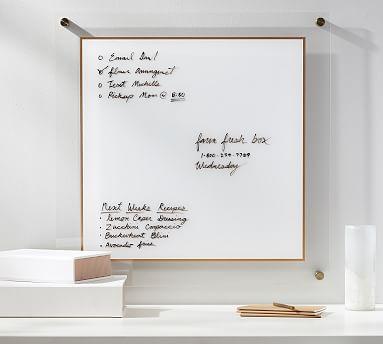 Email Dan!
flower Arrangement
Text Michelle
Pickup Mom @ 8:30
farm fresh box
1-800-279-7789
Wednesday
Next Weeks Recipes
· lemon Caper Dressing
· Zucchini Carpaccio
· Buckwheat Blini
· Avocado